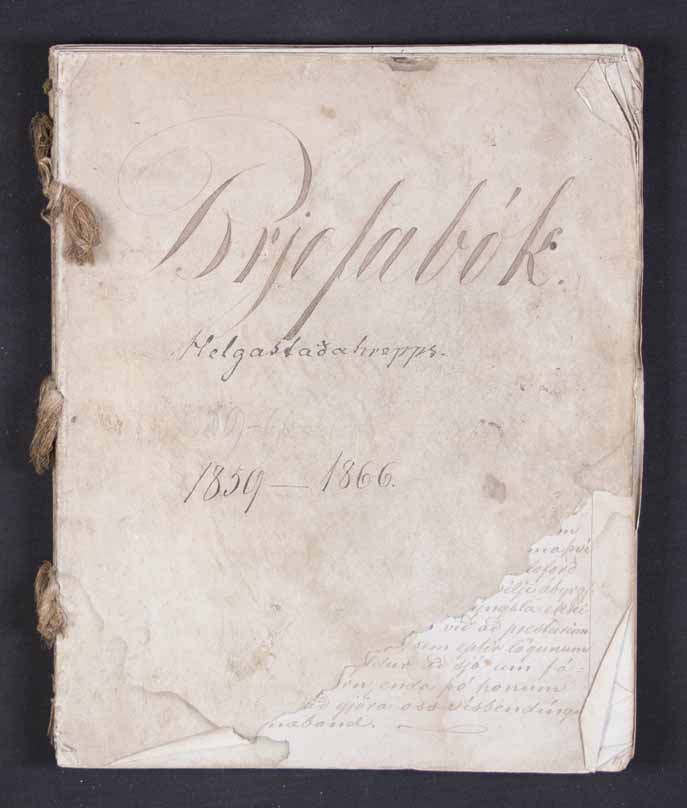 Brjefabók.
Helgastaðahrepps.
1859 — 1866.
m
við að presturinn
sem eptir lögunum
að sjá um fá-
enda þó honum
að gjöra oss vísbendíngu
naband.